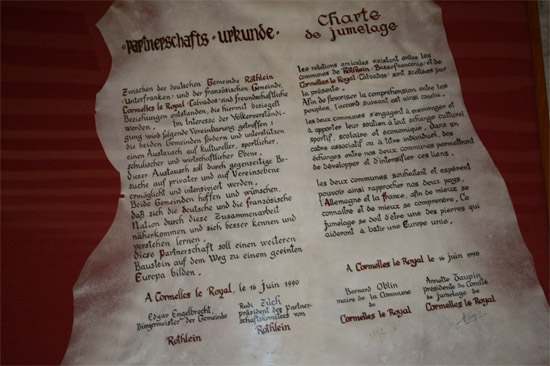 ·Partnerschafts · urkunde·
Zwischen der deutschen Gemeinde Röthlein
·Unterfranken· und der französischen Gemeinde,
Cormelles le Royal ·Calvados· sind freundschaftliche
Beziehungen entstanden, die hiermit besiegelt
werden. Im Interesse der Völkerverständi-
gung wird folgende Vereinbarung getroffen:
die beiden Gemeinden fördern und unterstützen
einen Austausch auf kultureller, sportlicher,
schulischer und wirtschaftlicher Ebene.
Dieser Austausch soll durch gegenseitige Be-
suche auf privater und auf Vereinsebene
ermöglicht und intensiviert werden.
Beide Gemeinden hoffen und wünschen,
daß sich die deutsche und die französische
Nation durch diese Zusammenarbeit
näherkommen und sich besser kennen und
verstehen lernen.
diese Partnerschaft soll einen weiteren
Baustein auf dem Weg zu einem geeinten
Europa bilden.
A Cormelles le Royal, le 16 juin 1990
Edgar Engelbrecht,
Bürgermeister der Gemeinde
Röthlein
Rudi Zilch
präsident des Partner-
schaftskomitees von
Röthlein
Charte
de jumelage
les relations amicales existant entre les
communes de Röthlein ·Bassefranconie· et de
Cormelles le Royal ·Calvados· sont scellées par
la présente.
Afin de favoriser la compréhension entre les
peuples, l'accord suivant est ainsi conclu.
les deux communes s'engagent à encourager et
à apporter leur soutien à tout échange culturel
sportif, scolaire et économique. Dans un
cadre associatif ou à titre individuel, des
échanges entre nos deux communes permettront
de développer et d'intensifier ces liens.
les deux communes souhaitent et espèrent
pouvoir ainsi rapprocher nos deux pays,
l'Allemagne et la France, afin de mieux se
connaître et de mieux se comprendre. Ce
jumelage se doit d'être une des pierres qui
aideront à bâtir une Europe unie.
A Cormelles le Royal le 16 juin 1990
Bernard Oblin
maire de la Commune
de
Cormelles le Royal
Annette Taupin
présidente du Comité
de jumelage de
Cormelles le Royal